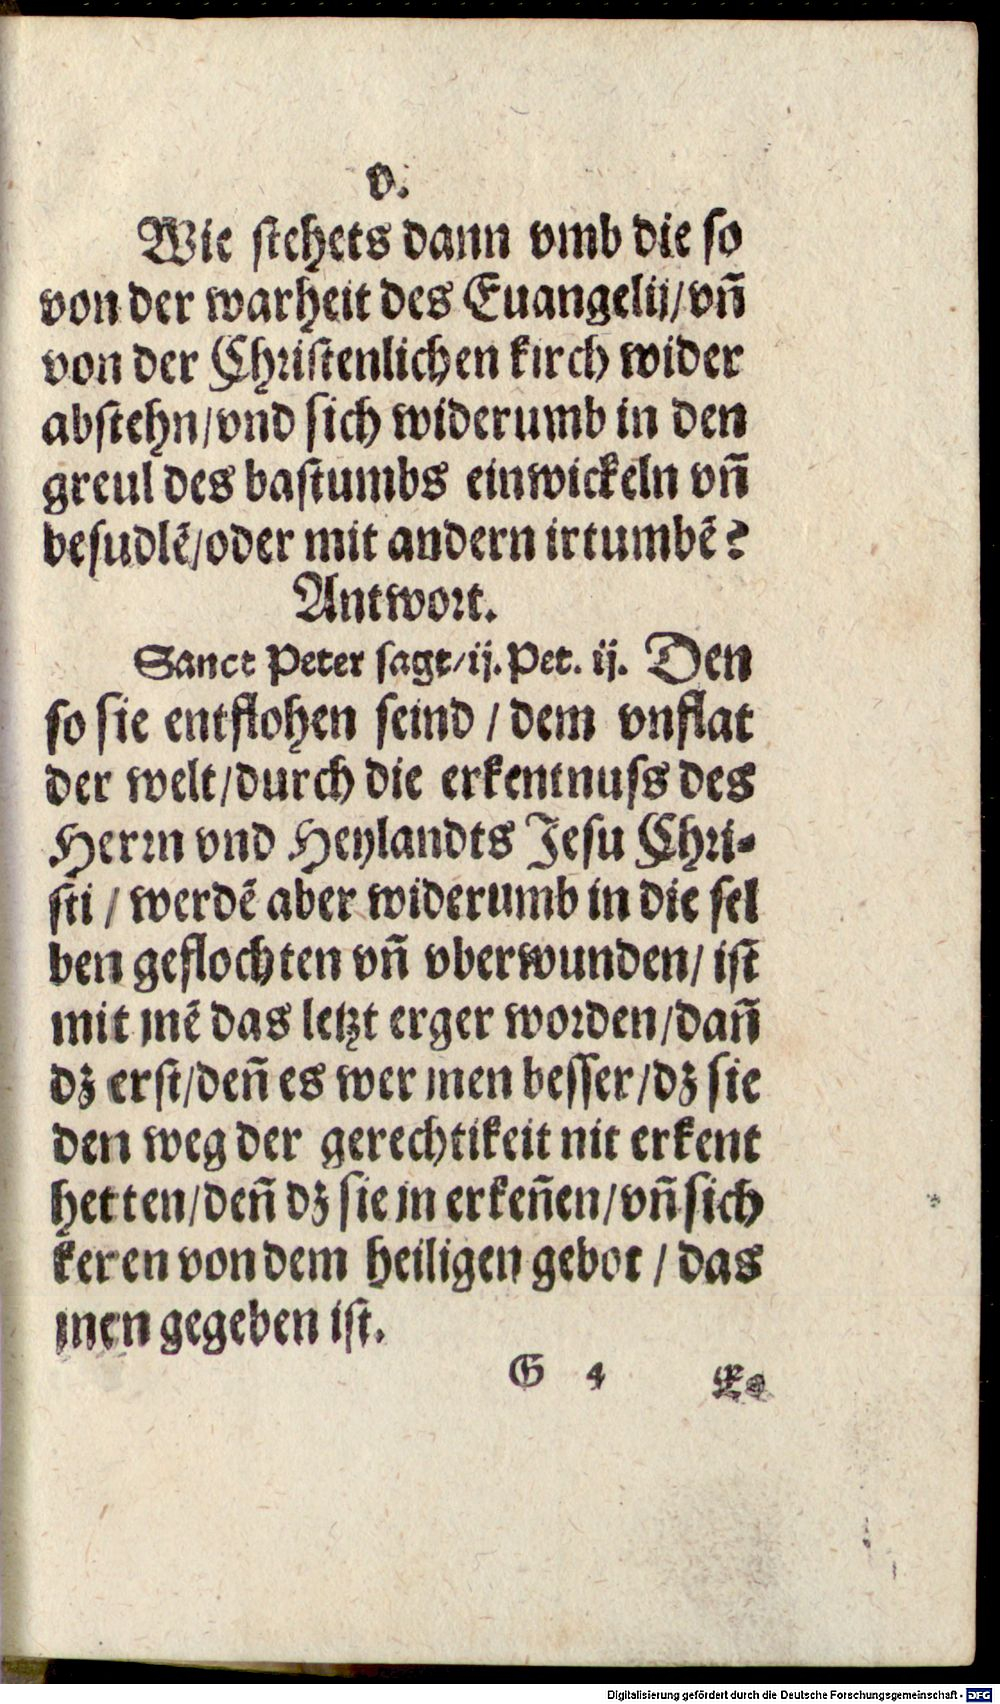 v.
Wie stehets dann vmb die so
von der warheit des Euangelij/vñ
von der Christenlichen kirch wider
abstehn/vnd sich widerumb in den
greul des bastumbs einwickeln vñ
besudlẽ/oder mit andern irtumbẽ?
Antwort.
Sanct Peter sagt/ij. Pet. ij. Den
so sie entflohen seind / dem vnflat
der welt/durch die erkentnuss des
Herrn vnd Heylandts Jesu Chri-
sti / werdẽ aber widerumb in die sel
ben geflochten vñ vberwunden/ ist
mit jnẽ das letzt erger worden/dañ
dz erst/deñ es wer jnen besser/dz sie
den weg der gerechtikeit nit erkent
hetten/deñ dz sie jn erkeñen/vñ sich
keren von dem heiligen gebot / das
jnen gegeben ist.
G 4 Es
Digitalisierung gefördert durch die Deutsche Forschungsgemeinschaft - DFG